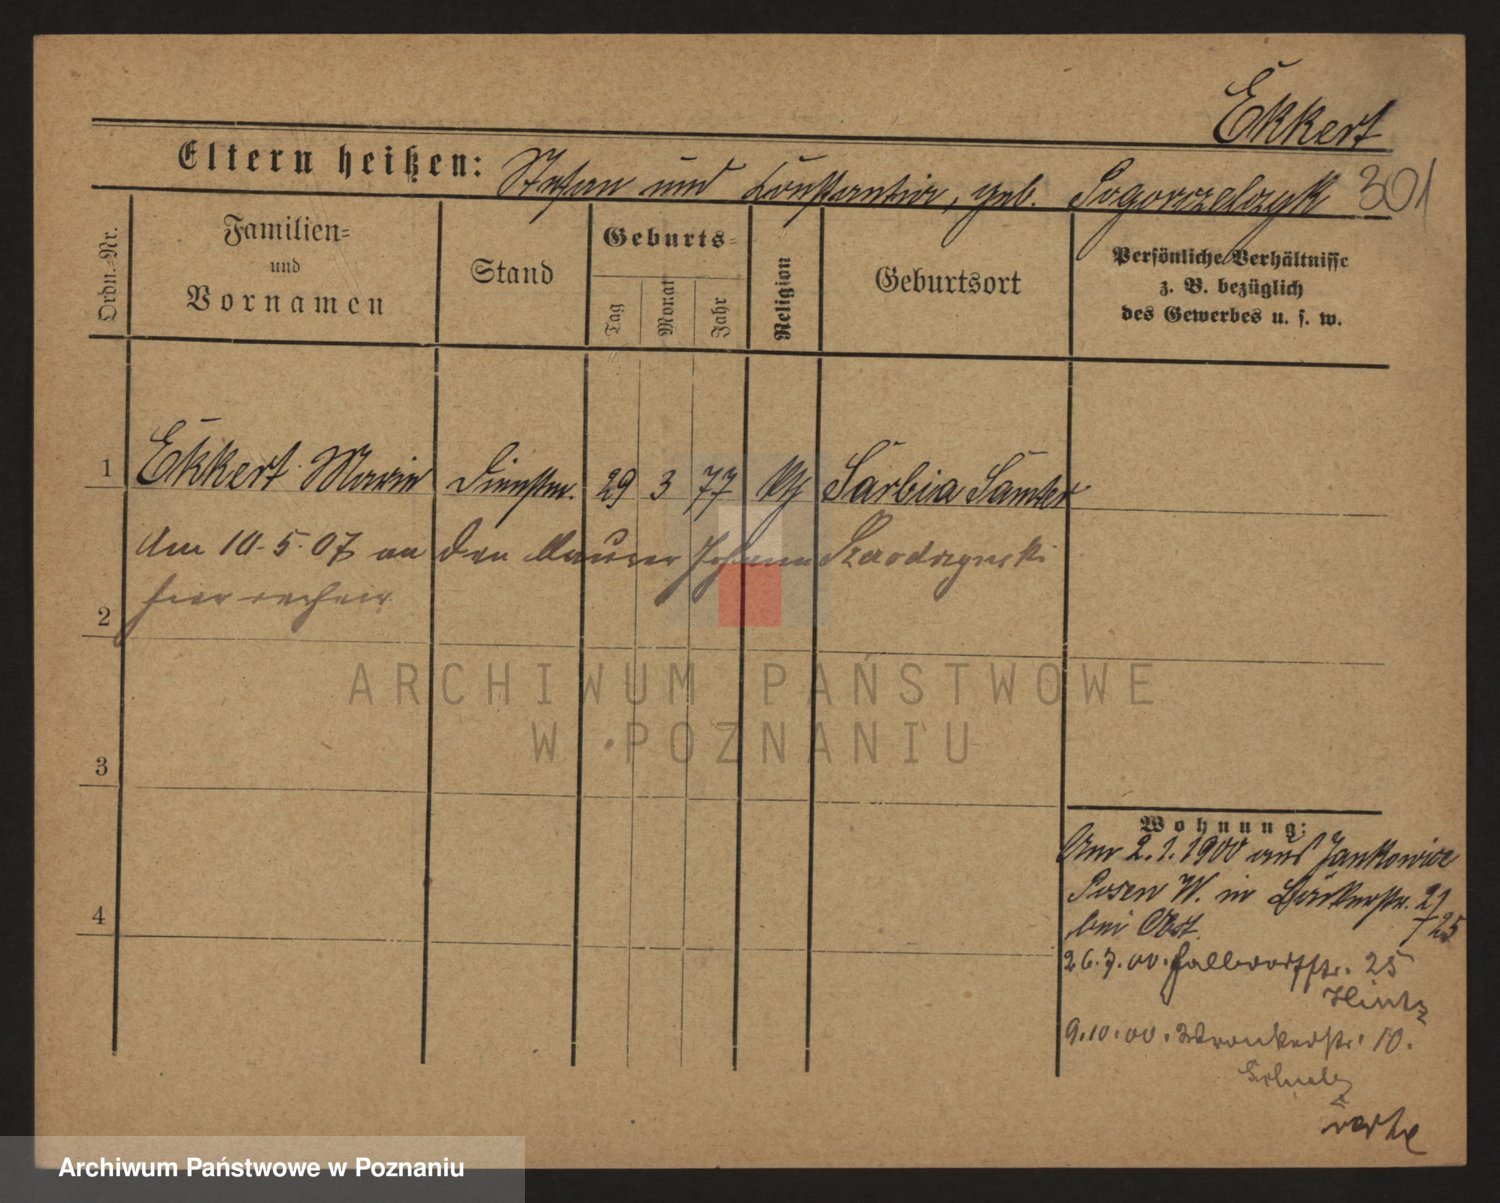 Ekkert
Eltern heißen: Stefan und Constantia, geb. Pogorzelczyk 301
Ordn.-Nr.
Familien-
und
Vornamen
Stand
Geburts-
Tag
Monat
Jahr
Religion
Geburtsort
Persönliche Verhältnisse
z. B. bezüglich
des Gewerbes u. s. w.
1 Ekkert Marie Dienstm. 29 3 77 kth Sarbia Samter
Am 10.5.07 an den Maurer Johann
2 hier
3
4
Wohnung:
Am 2.1.1900 aus Jankowice
Posen W. in Bäckerstr. 21
bei Obst. 725
26.7.00. Halbdorfstr. 25
Hintz
9.10.00. Wronkerstr. 10.
Schulz
verte
ARCHIWUM PAŃSTWOWE
W POZNANIU
Archiwum Państwowe w Poznaniu